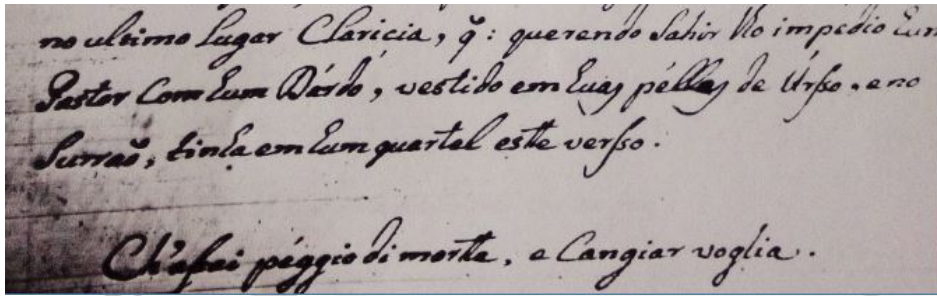 no ultimo lugar Claricia, q̃: querendo sahir lho impedio hum
Pastor com hum Dárdo, vestido em huas péllas de Urso, e no
Surraõ, tinha em hum quartel este verso.
Ch'assai péggio di morte, e Cangiar voglia.